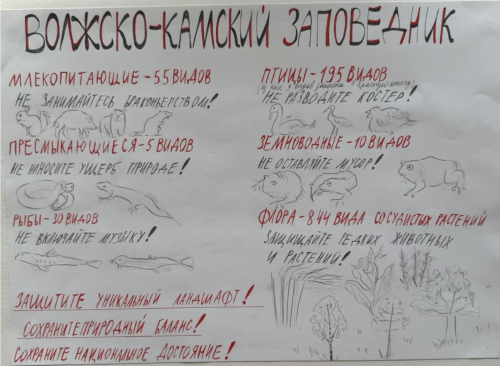 ВОЛЖСКО-КАМСКИЙ ЗАПОВЕДНИК
МЛЕКОПИТАЮЩИЕ - 55 ВИДОВ
НЕ ЗАНИМАЙТЕСЬ БРАКОНЬЕРСТВОМ!
ПРЕСМЫКАЮЩИЕСЯ - 5 ВИДОВ
НЕ НАНОСИТЕ УЩЕРБ ПРИРОДЕ!
РЫБЫ - 30 ВИДОВ
НЕ ВКЛЮЧАЙТЕ МУЗЫКУ!
ПТИЦЫ - 195 ВИДОВ
НЕ РАЗВОДИТЕ КОСТЕР!
ЗЕМНОВОДНЫЕ - 10 ВИДОВ
НЕ ОСТАВЛЯЙТЕ МУСОР!
ФЛОРА - 844 ВИДА СОСУДИСТЫХ РАСТЕНИЙ
ЗАЩИЩАЙТЕ РЕДКИХ ЖИВОТНЫХ
И РАСТЕНИЙ!
ЗАЩИТИТЕ УНИКАЛЬНЫЙ ЛАНДШАФТ!
СОХРАНИТЕ ПРИРОДНЫЙ БАЛАНС!
СОХРАНИТЕ НАЦИОНАЛЬНОЕ ДОСТОЯНИЕ!